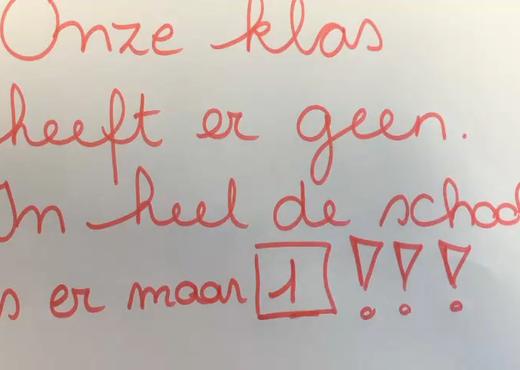 Onze klas
heeft er geen.
In heel de school
is er maar 1 !!!